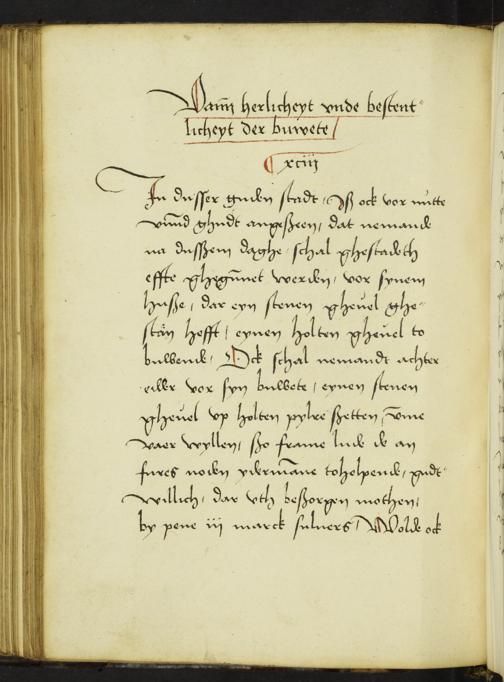 Vann herlicheyt vnde bestent
licheyt der buwete
xciij
In dusser guden stadt, ys ock vor nutte
vnnd ghudt angeszeen, dat nemande
na dusszem daghe schal ghestadeth
effte ghegunnet werden, vor synem
husze, dar eyn stenen gheuel ghe-
stan hefft, eynen holten gheuel to
buwende, Ock schal nemandt achter
edder vor syn buwete, eynen stenen
gheuel vp holten pylre szetten, vme
vaer wyllen, szo frame lude de an
fures noden ydermanne tohelpende, gudt
willich, dar vth beszorgen mothen,
by pene iij marck suluers, Wolde ock